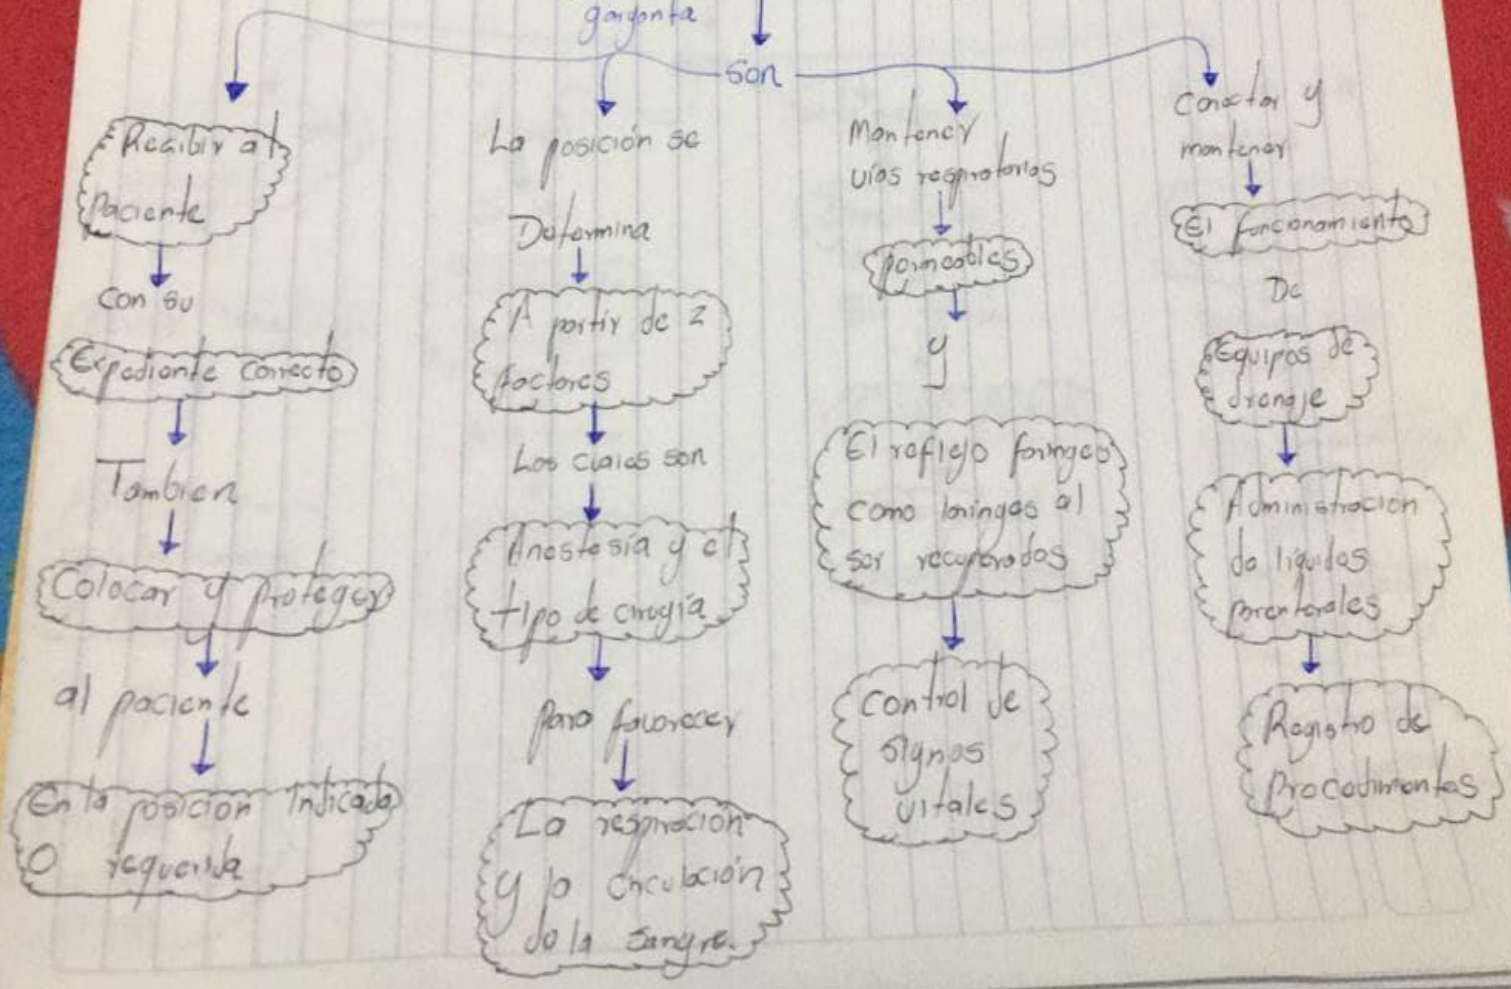 garganta
son
Recibir al
Paciente
con su
Expediente correcto
Tambien
Colocar y proteger
al paciente
En la posicion Indicada
O requerida
La posición se
Determina
A partir de 2
factores
Los cuales son
Anestesia y el
tipo de cirugía
Para favorecer
La respiración
y la circulación
de la sangre.
Mantener
vías respiratorias
permeables
y
El reflejo faringeo
como laringeo al
ser recuperados
control de
signos
vitales
Conectar y
mantener
El funcionamiento
De
Equipos de
drenaje
Administracion
de liquidos
parenterales
Registro de
Procedimientos